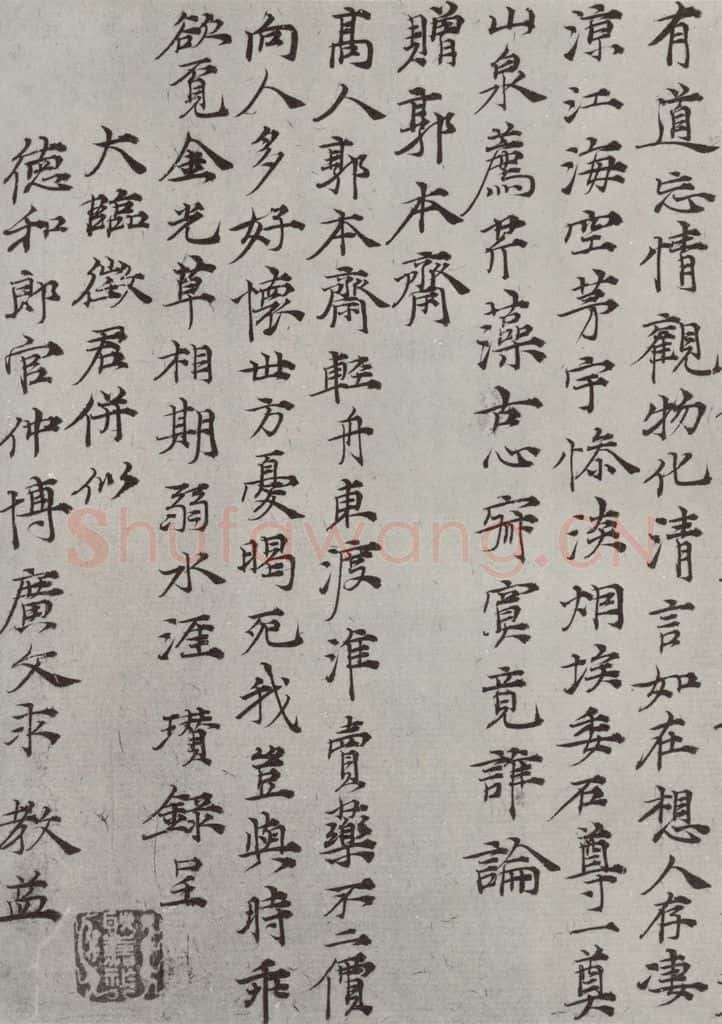 有道忘情觀物化清言如在想人存淒
涼江海空茅宇慘淡烟埃委石尊一奠
山泉薦芹藻古心寂寞竟誰論
贈郭本齋
高人郭本齋輕舟東渡淮賣藥不二價
向人多好懷世方憂暍死我豈與時乖
欲覓金光草相期弱水涯 瓚錄呈
大臨徵君併似
德和郎官仲博廣文求 教益
Shufawang.CN